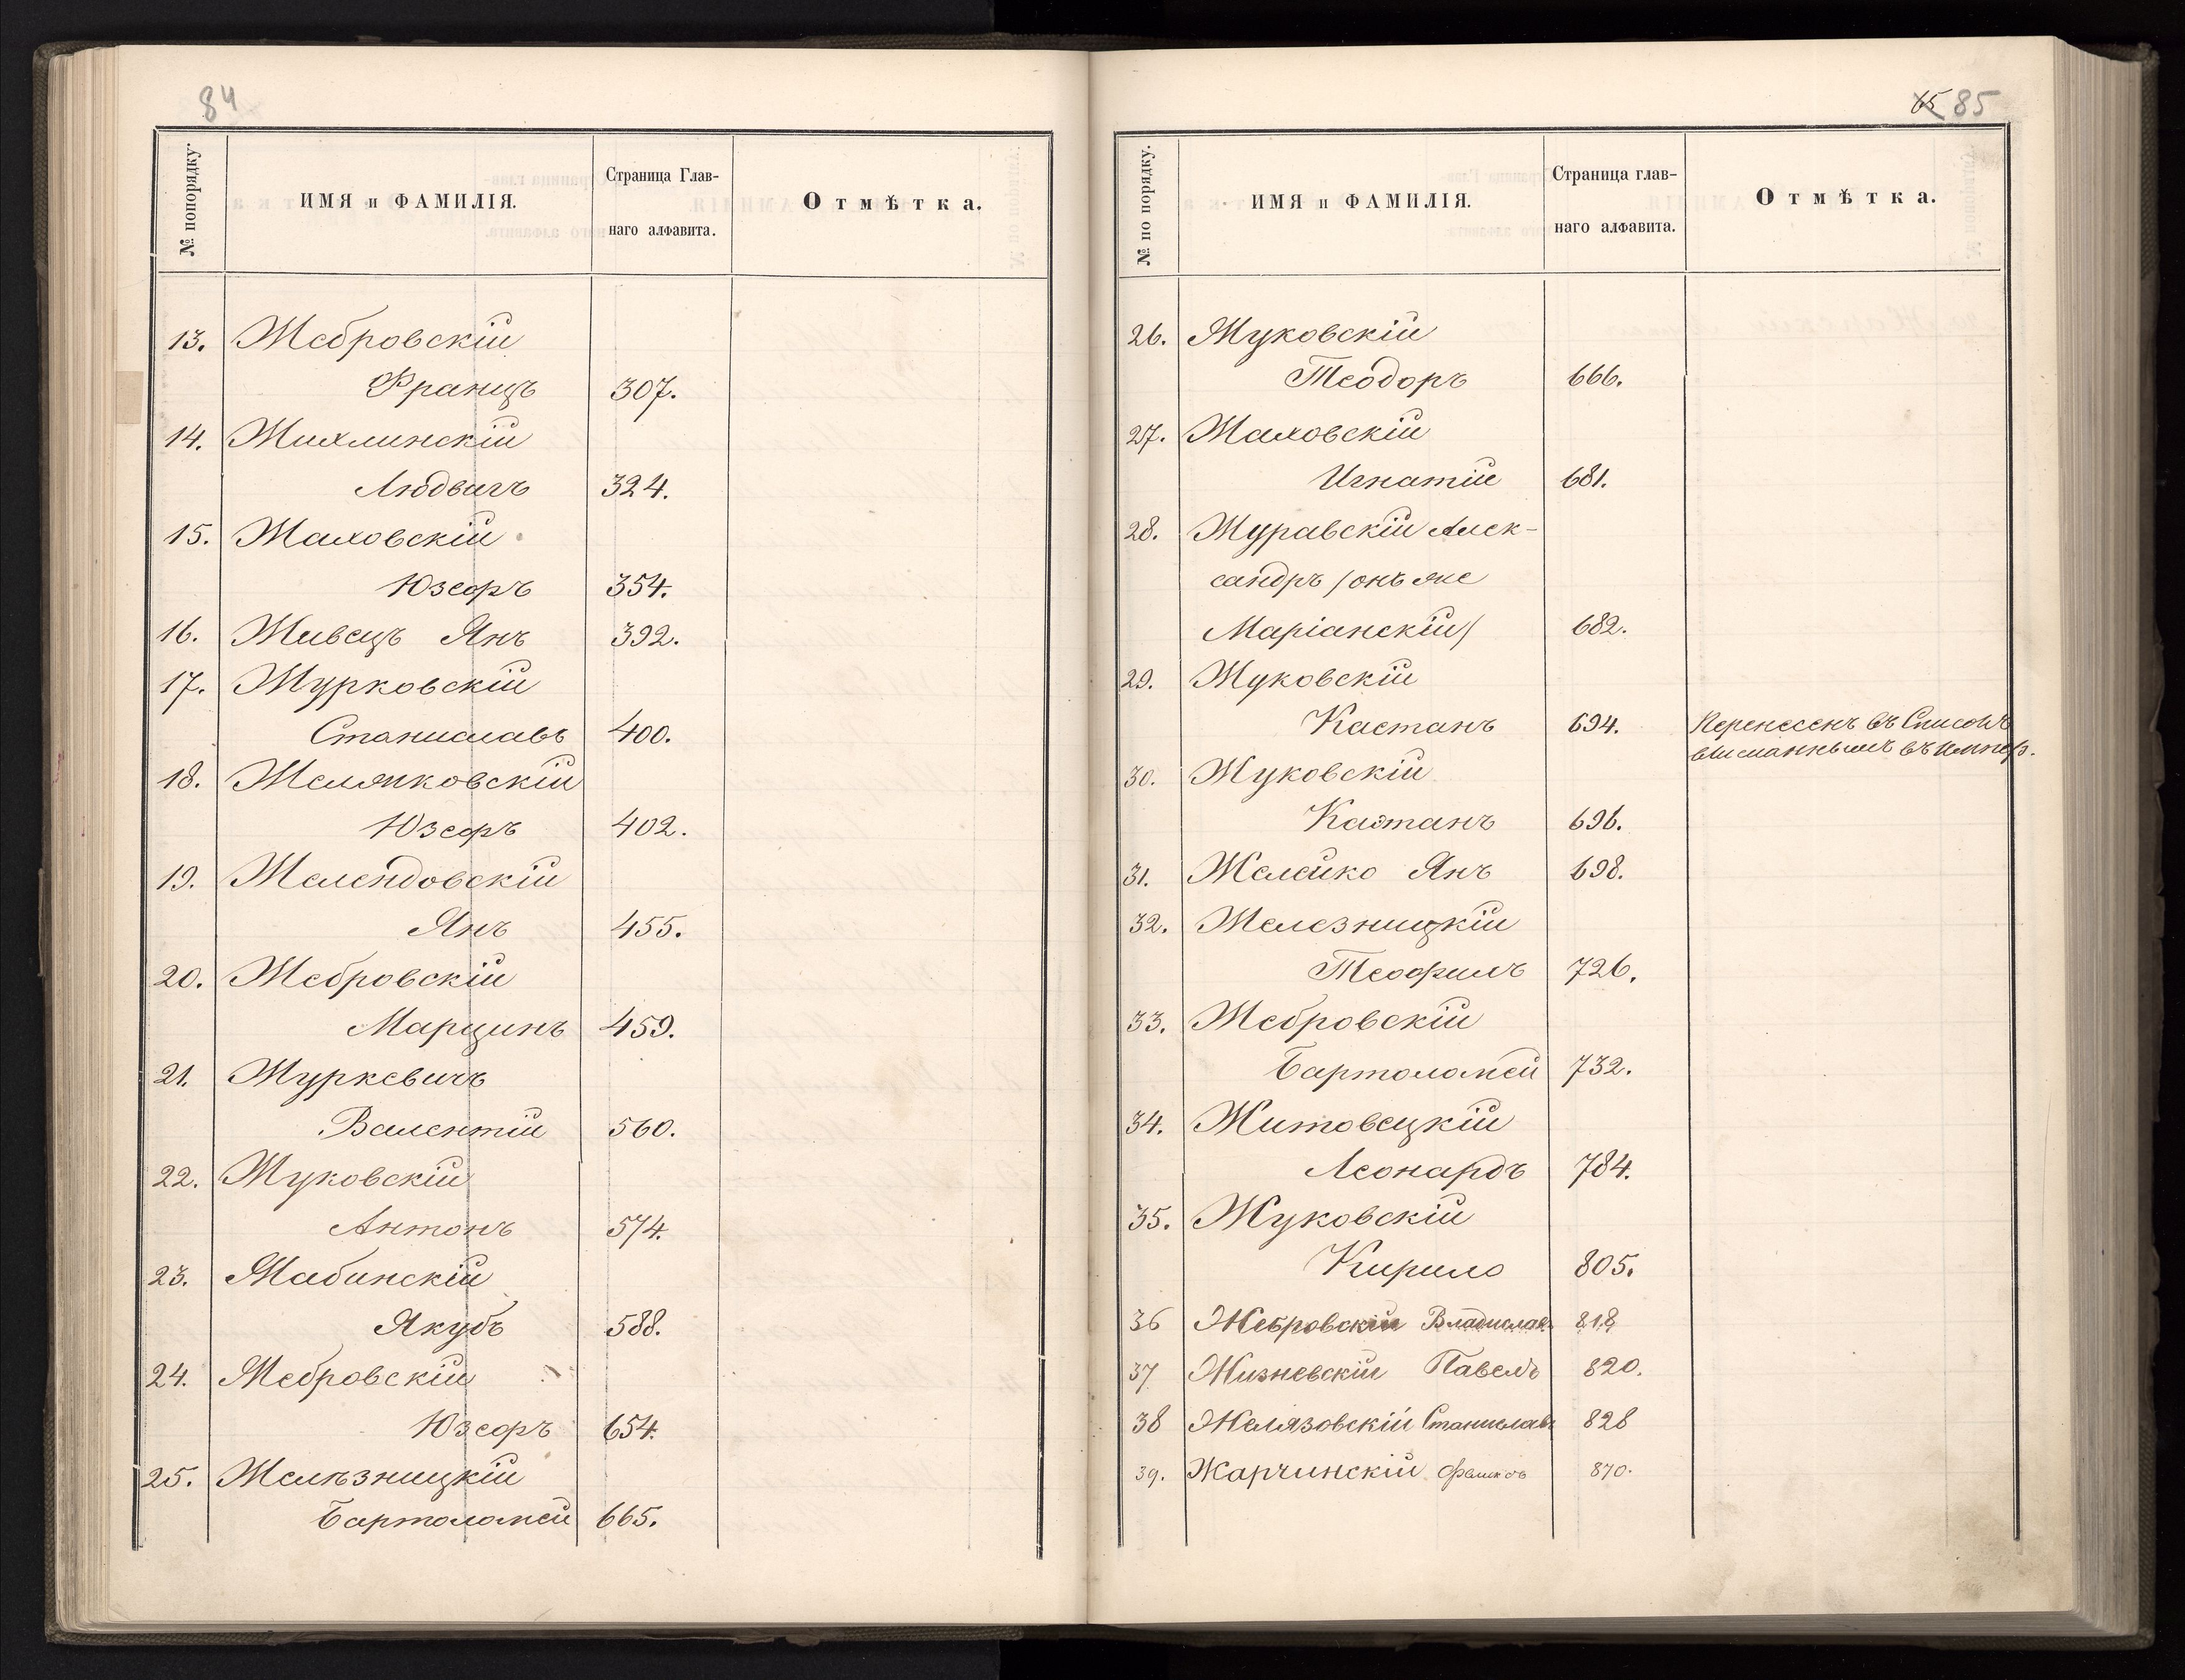 84
№ попорядку.
ИМЯ и ФАМИЛІЯ.
Страница Глав-
наго алфавита.
Отмѣтка.
13. Жебровскій
Францъ 307.
14. Жихлинскій
Людвигъ 324.
15. Жаховскій
Юзефъ 354.
16. Живецъ Янъ 392.
17. Журковскій
Станиславъ 400.
18. Желяпковскій
Юзефъ 402.
19. Желендовскій
Янъ 455.
20. Жебровскій
Марцинъ 459.
21. Журкевичъ
Валентій 560.
22. Жуковскій
Антонъ 574.
23. Жабинскій
Якубъ 588.
24. Жебровскій
Юзефъ 654.
25. Желѣзницкій
Бартоломей 665.
65 85
№ по порядку.
ИМЯ и ФАМИЛІЯ.
Страница глав-
наго алфавита.
Отмѣтка.
26. Жуковскій
Теодоръ 666.
27. Жаховскій
Игнатій 681.
28. Журавскій Алек-
сандръ /онъ же
Маріанскій/ 682.
29. Жуковскій
Каетанъ 694. Перенесенъ въ Списокъ
высланнымъ въ Импер.
30. Жуковскій
Каэтанъ 696.
31. Желейко Янъ 698.
32. Железницкій
Теофилъ 726.
33. Жебровскій
Бартоломей 732.
34. Житовецкій
Леонардъ 784.
35. Жуковскій
Кирило 805.
36 Жебровскій Владиславъ 818
37 Жизневскій Павелъ 820.
38 Желязовскій Станиславъ 828
39. Жарчинскій 870.